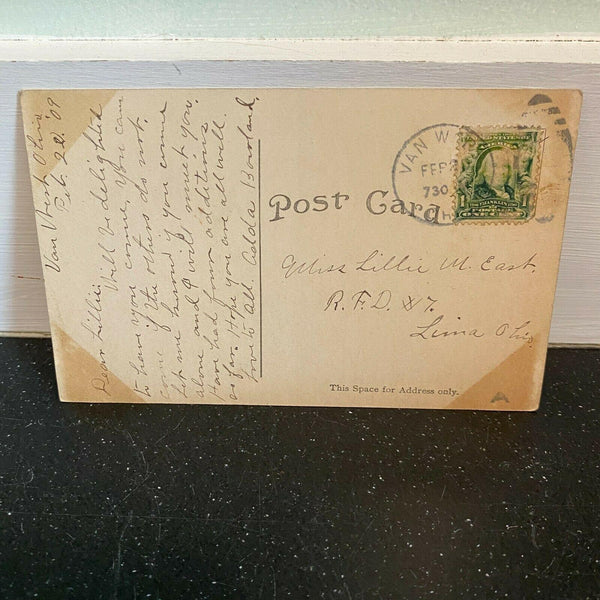 Van Wert Ohio
Feb. 22. '09
Dear Lillie:
Will be delighted
to have you come. You can
come if the others do not.
Let me know if you come
alone and I will meet you.
Have had four additions
so far. Hope you are all well.
Love to all. Adda Borland.
Post Card
Miss Lillie M. East.
R.F.D. #7.
Lima Ohio,
This Space for Address only.
VAN WERT
FEB
730
FRANKLIN
POSTAGE
ONE CENT
A